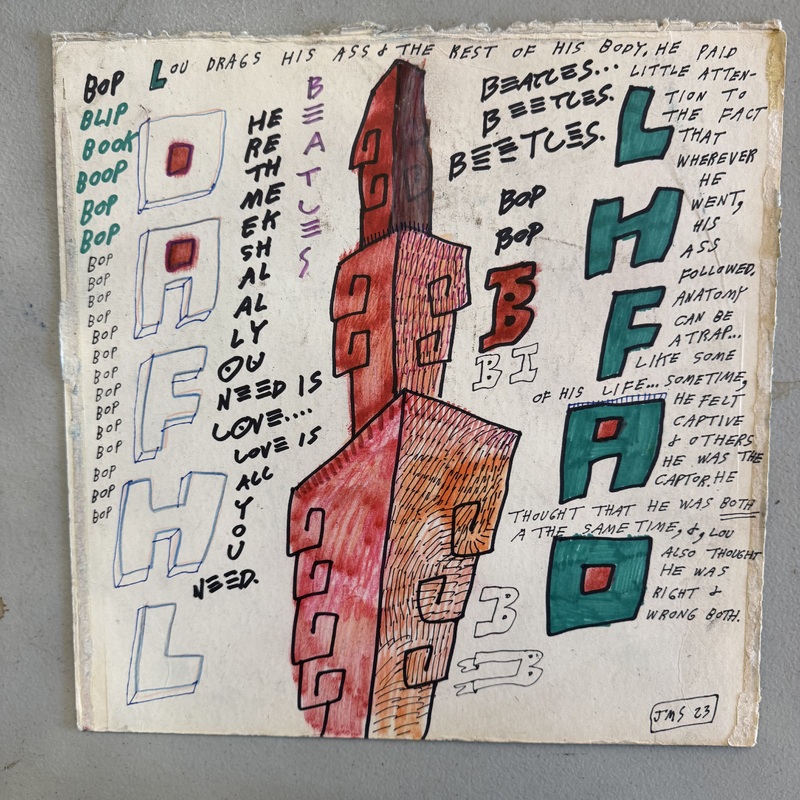 LOU DRAGS HIS ASS & THE REST OF HIS BODY. HE PAID
LITTLE ATTEN-
TION TO
THE FACT
THAT
WHEREVER
HE
WENT,
HIS
ASS
FOLLOWED.
ANATOMY
CAN BE
A TRAP...
LIKE SOME
OF HIS LIFE... SOMETIME,
HE FELT
CAPTIVE
& OTHERS
HE WAS THE
CAPTOR. HE
THOUGHT THAT HE WAS BOTH
A THE SAME TIME, &, LOU
ALSO THOUGHT
HE WAS
RIGHT &
WRONG BOTH.
BOP
BLIP
BOOK
BOOP
BOP
BOP
BOP
BOP
BOP
BOP
BOP
BOP
BOP
BOP
BOP
BOP
BOP
BOP
BOP
BOP
O
A
F
H
L
HE
RE
TH
ME
EK
SH
AL
AL
LY
OU
NEED IS
LOVE....
LOVE IS
ALL
Y
O
U
NEED.
B
E
A
T
L
E
S
BEATLES...
BEETLES.
BEETLES.
BOP
BOP
B
BI
B
B
L
H
F
A
O
JMS 23